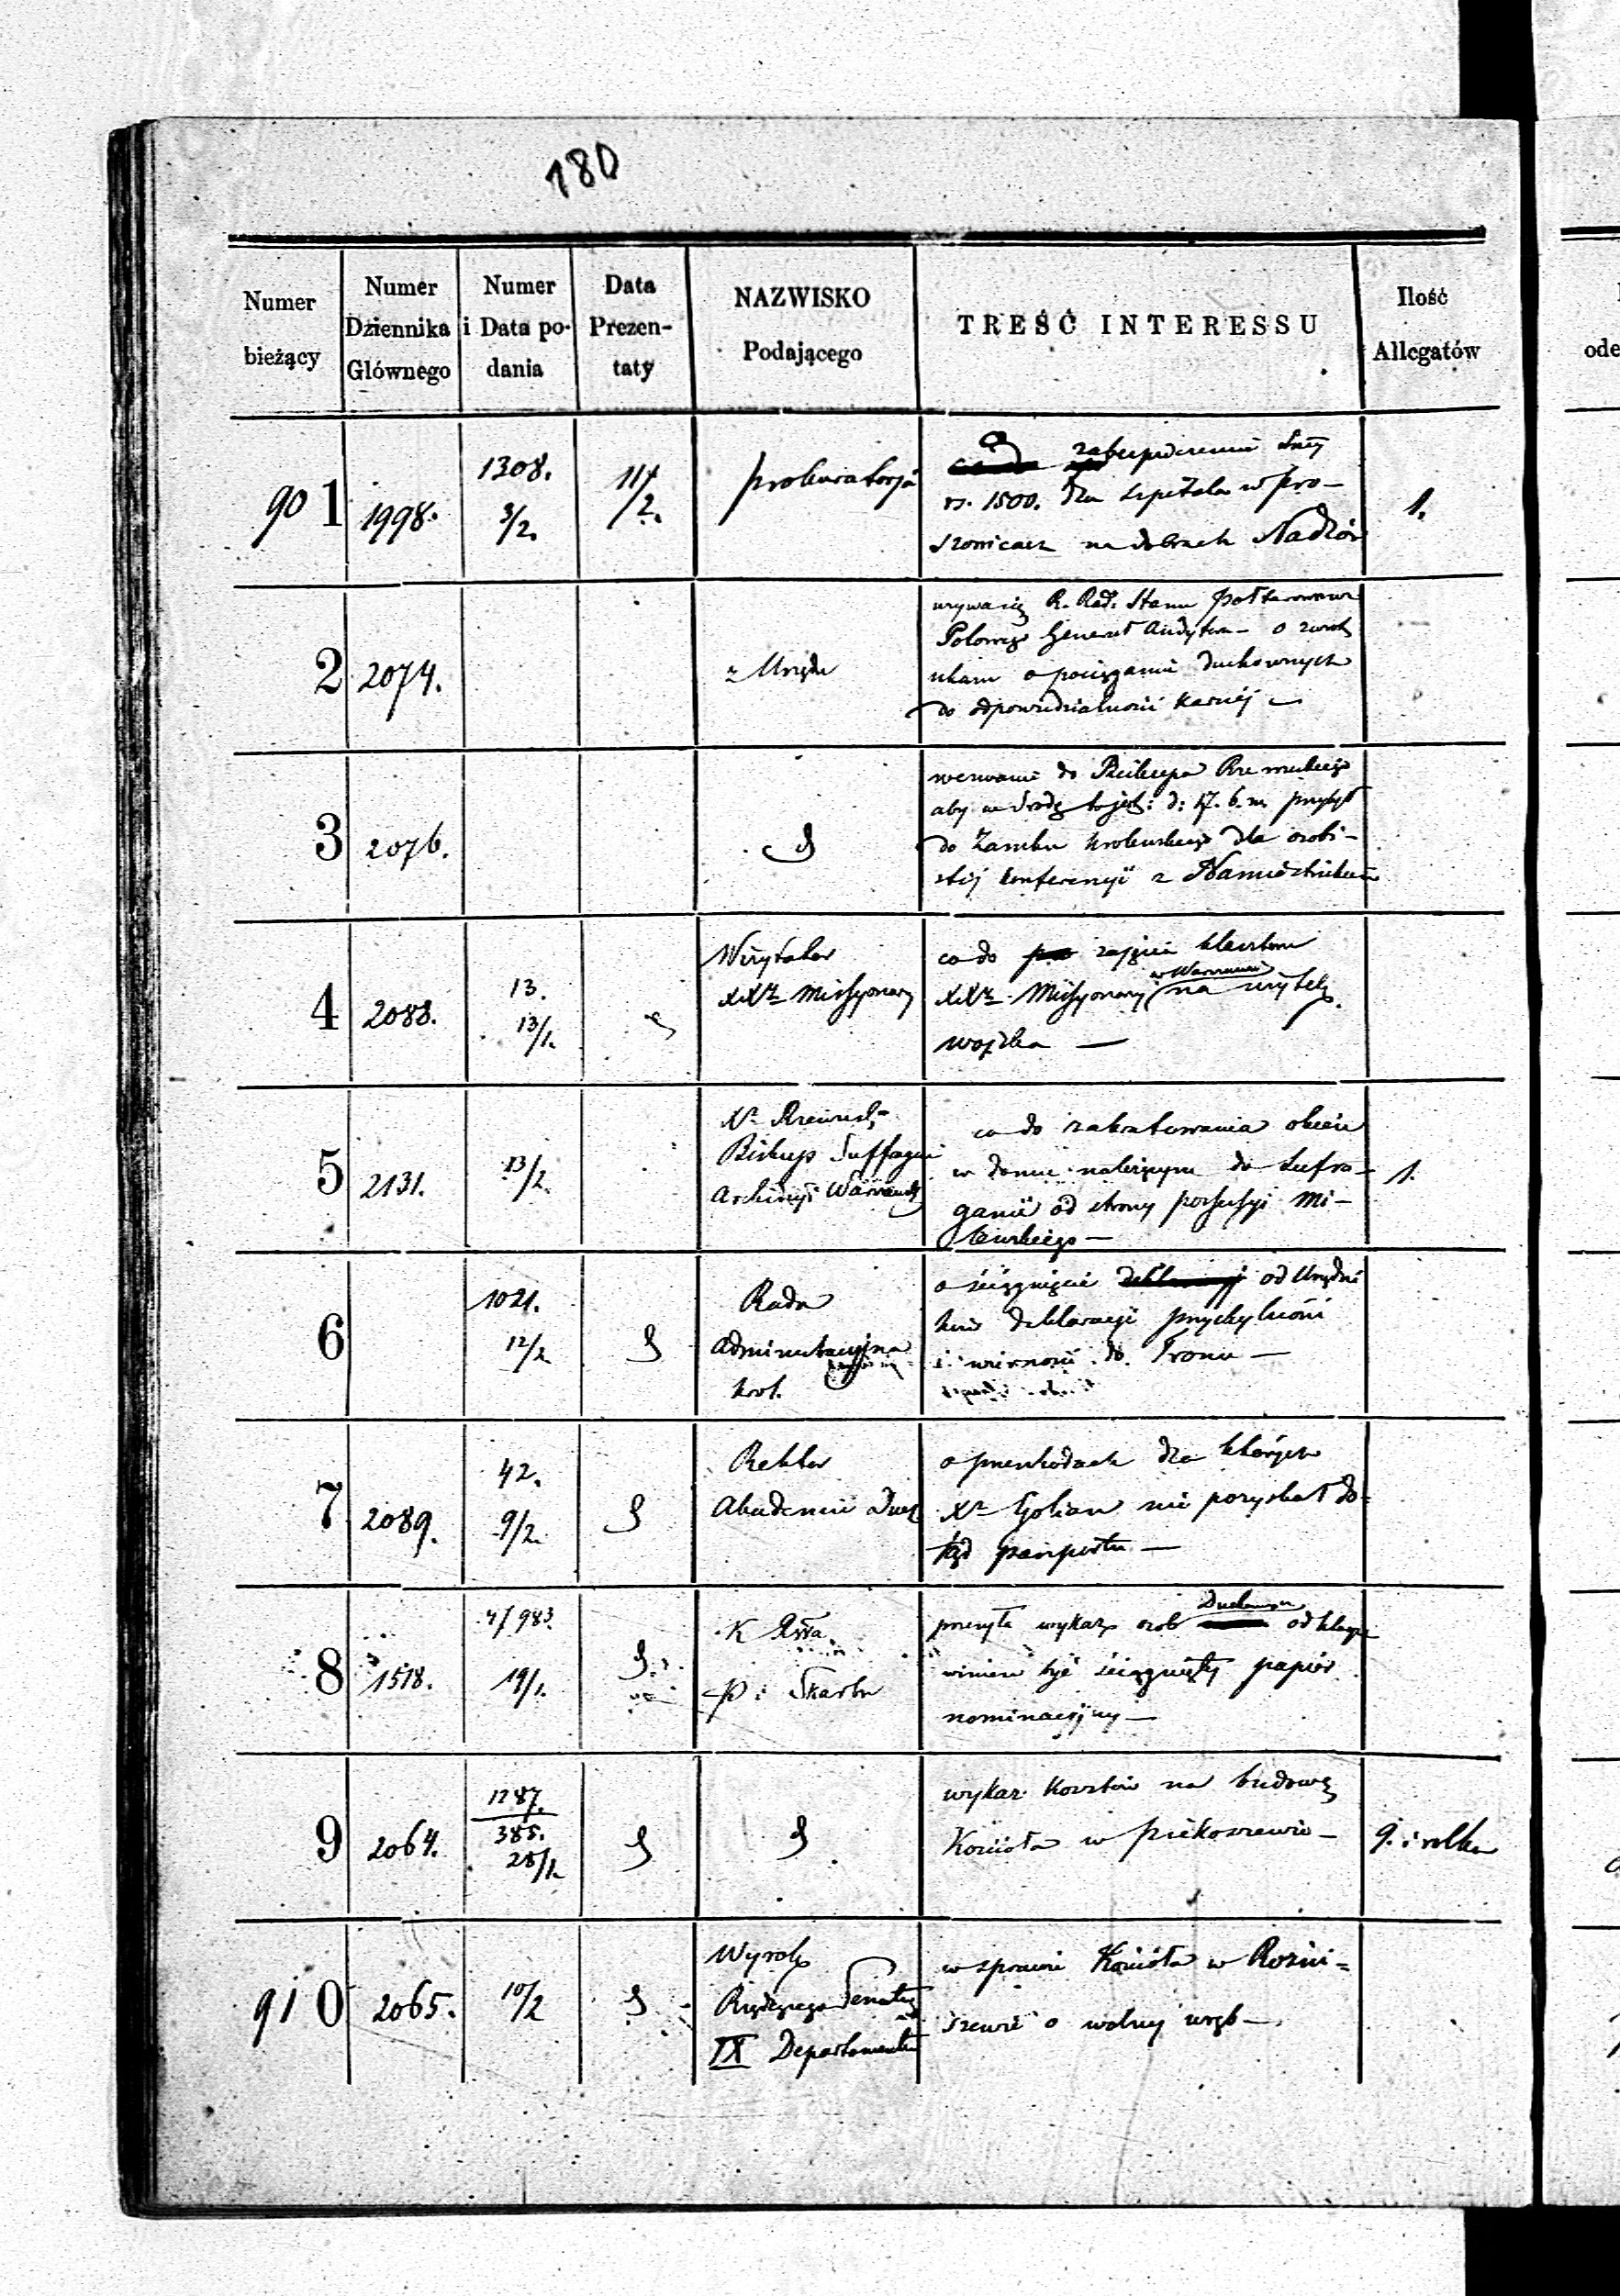 180
Numer bieżący
Numer Dziennika Głównego
Numer i Data podania
Data Prezentaty
NAZWISKO Podającego
TREŚĆ INTERESSU
Ilość Allegatów
901
1998.
1308.
3/2.
11/2.
prokuratorja
O zabezpieczenie
rs. 1500. dla szpitala w Pro-
szowicach na dobrach
1.
2
2074.
z Urzędu
wzywa się R. Rad. Stanu
Polowego Generał Audytora o
o pociąganie duchownych
do odpowiedzialności karnéj —
3
2076.
wezwanie do Biskupa
aby we środę to jest: d: 17. b. m. przybył
do Zamku Królewskiego dla osobi-
stéj konferencyi z Namiestnikiem
4
2088.
13.
13/1.
Wizytator
XXży Missyonarzy
co do zajęcia klasztoru
XXży Missyonarzy w Warszawie na
wojska —
5
2131.
13/2.
Biskup Suffragan
Archidyec Warszawski
co do zakratowania okien
w domu należącym do Sufra-
ganii od strony possessyi Mi-
1.
6
1021.
12/2.
Rada
Administracyjna
król.
o ściągnięcie od Urzędni
ków deklaracyi przychylności
i wierności do Tronu —
7
2089.
42.
9/2.
Rektor
Akademii Duch
o przeszkodach dla których
X. Golian nie pozyskał do-
tąd paszportu —
8
1518.
4/983.
19/1.
K Rssa
P. i Skarbu
przesyła wykaz osób Duchownych od których
winien być ściągnięty papier
nominacyjny —
9
2064.
1287.
385.
28/1.
wykaz kosztów na budowę
Kościoła w Piekoszewie —
9. i rolka
910
2065.
10/2
Wyrok
Rządzącego Senatu
IX Departamentu
w sprawie Kościoła w Rozni-
szewie o wolny wrąb —